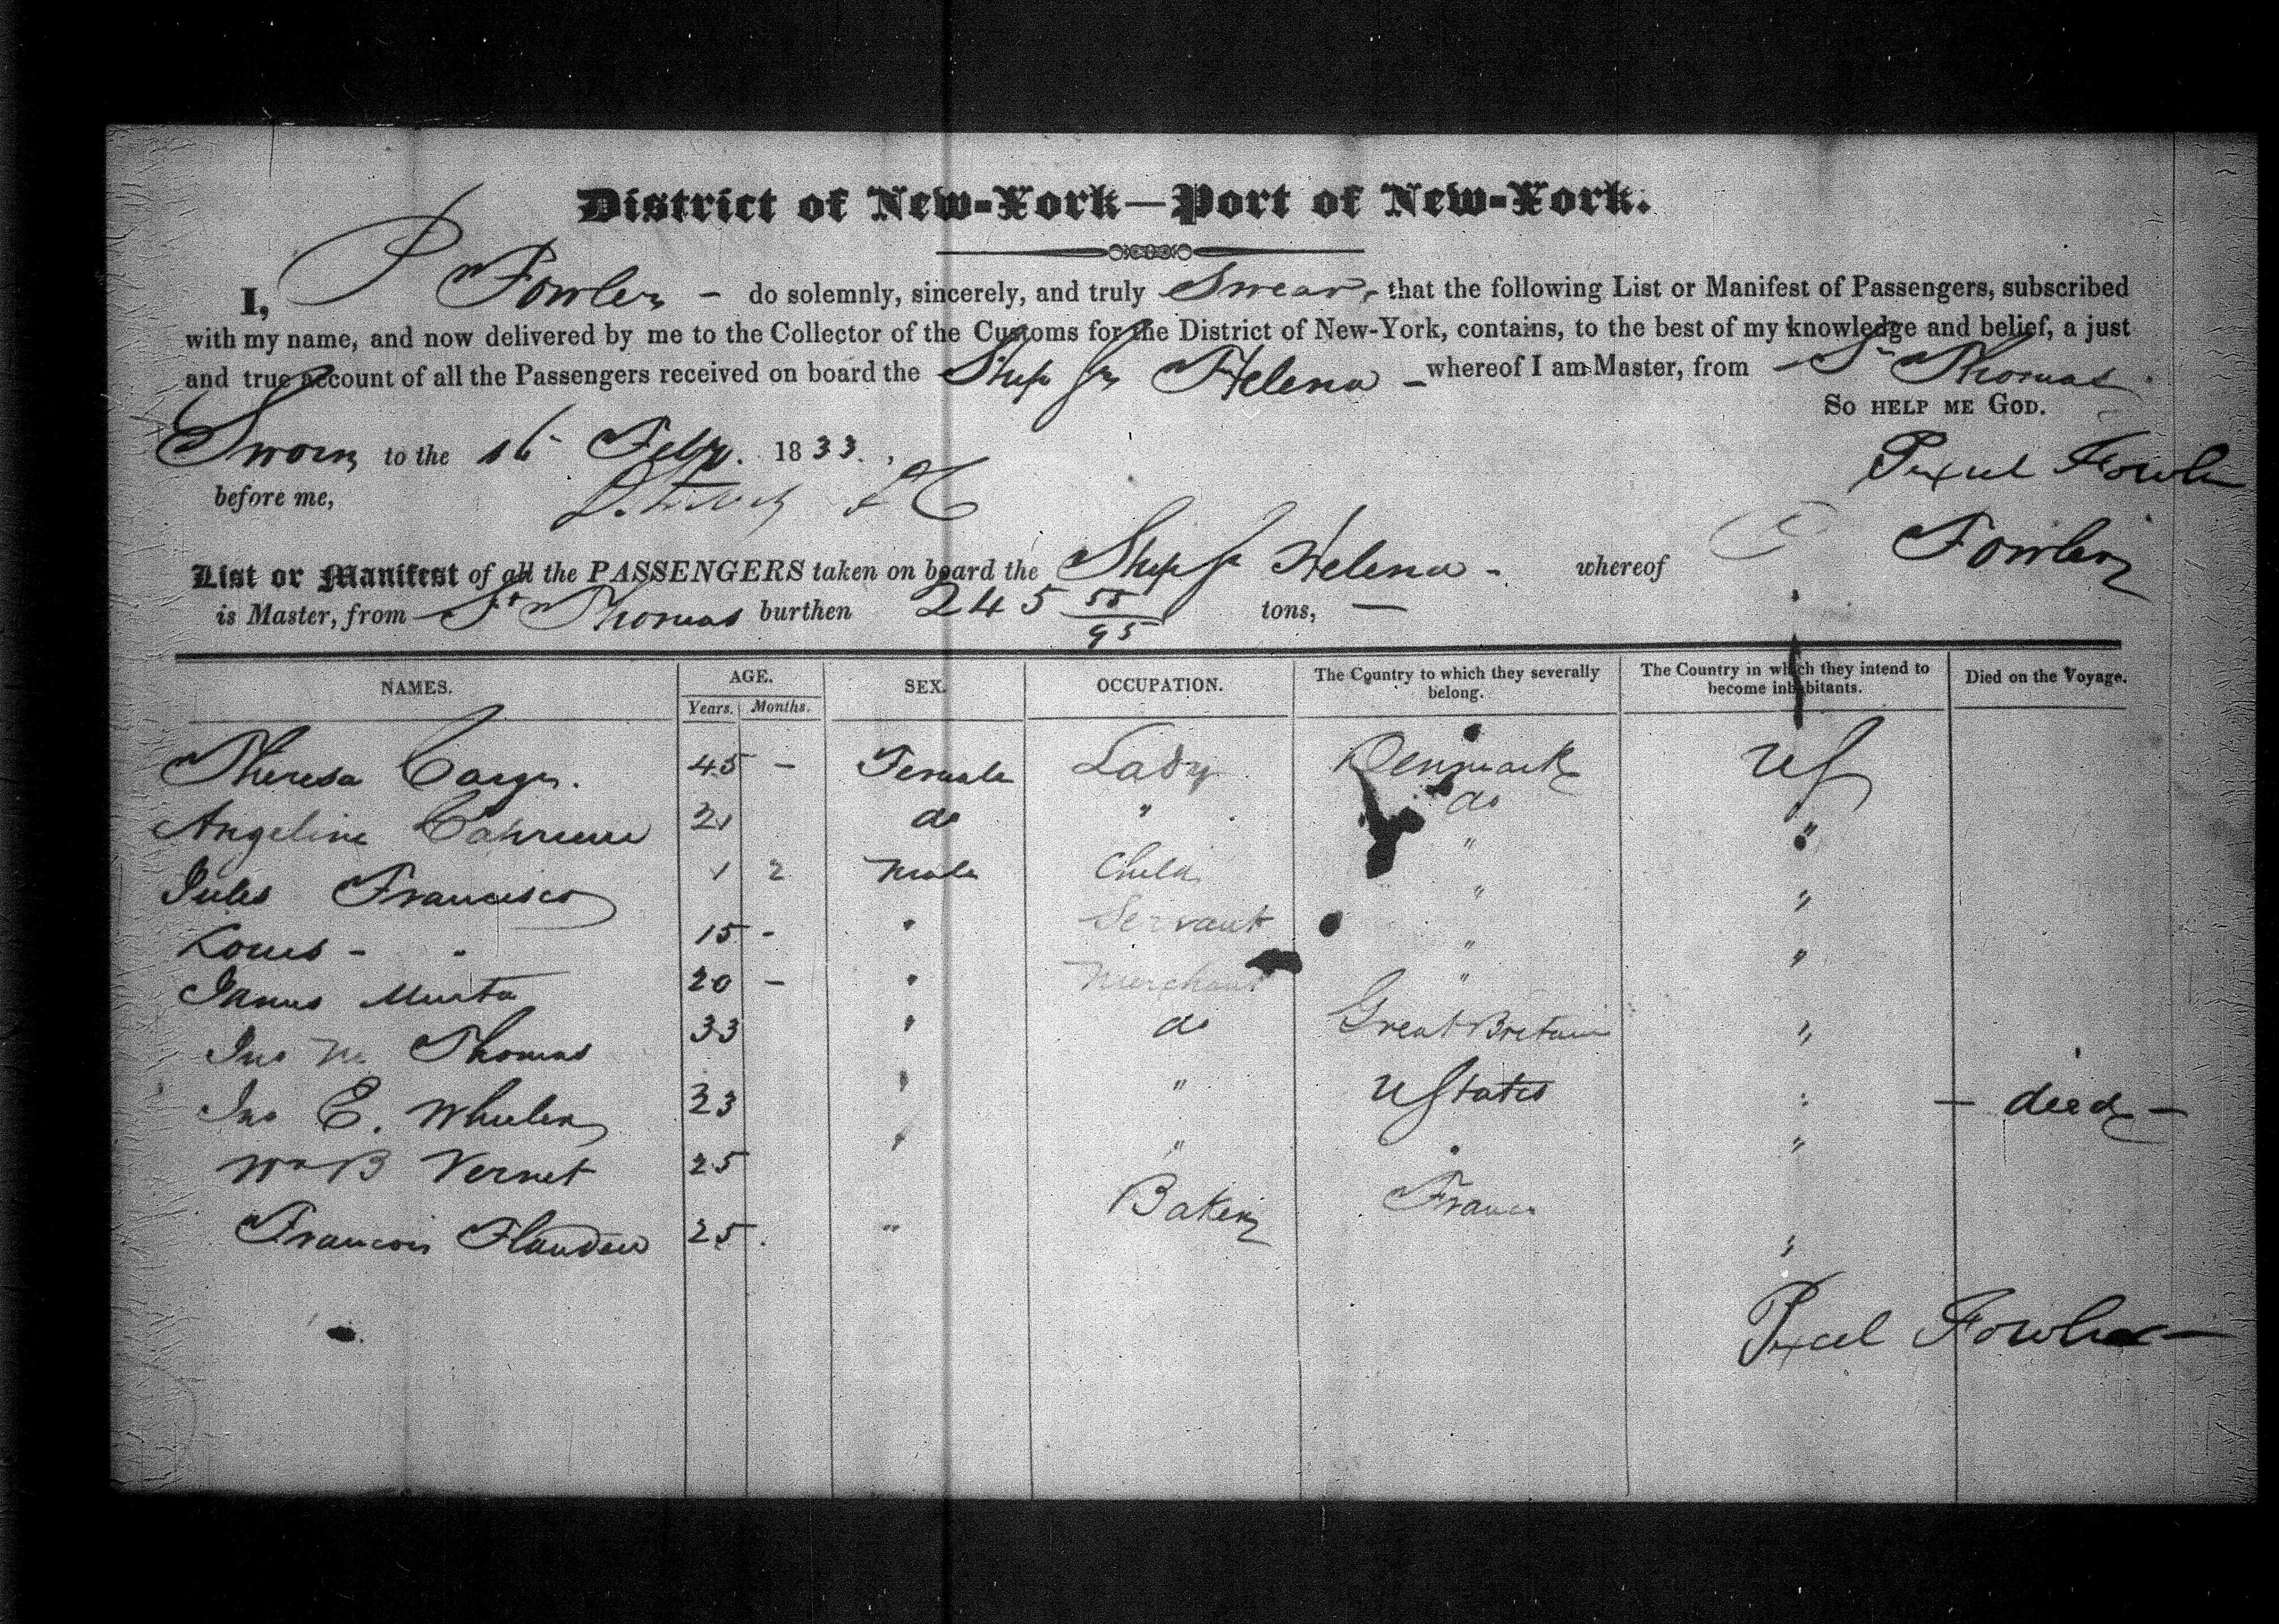 District of New-York—Port of New-York.
I, P Fowler - do solemnly, sincerely, and truly Swear, that the following List or Manifest of Passengers, subscribed
with my name, and now delivered by me to the Collector of the Customs for the District of New-York, contains, to the best of my knowledge and belief, a just
and true account of all the Passengers received on board the Ship St Helena - whereof I am Master, from St Thomas
SO HELP ME GOD.
Sworn to the 16 Feby. 1833.
before me,
Fowler
List or Manifest of all the PASSENGERS taken on board the Ship St Helena - whereof Fowler
is Master, from St Thomas burthen 245 55/95 tons, —
NAMES. AGE. SEX. OCCUPATION. The Country to which they severally belong. The Country in which they intend to become inhabitants. Died on the Voyage.
Years. Months.
Theresa 45 - Female Lady Denmark US
Angeline 21 do " do "
Jules Francisco 1 2 Male Child " "
Louis - - 15 - " Servant " "
20 - " Merchant " "
Jno M Thomas 33 " do Great Britain "
Jno E. Wheeler 23 " " UStates " - died -
Wm B Vernet 25 " " " "
Francois 25. " Baker France "
Fowler